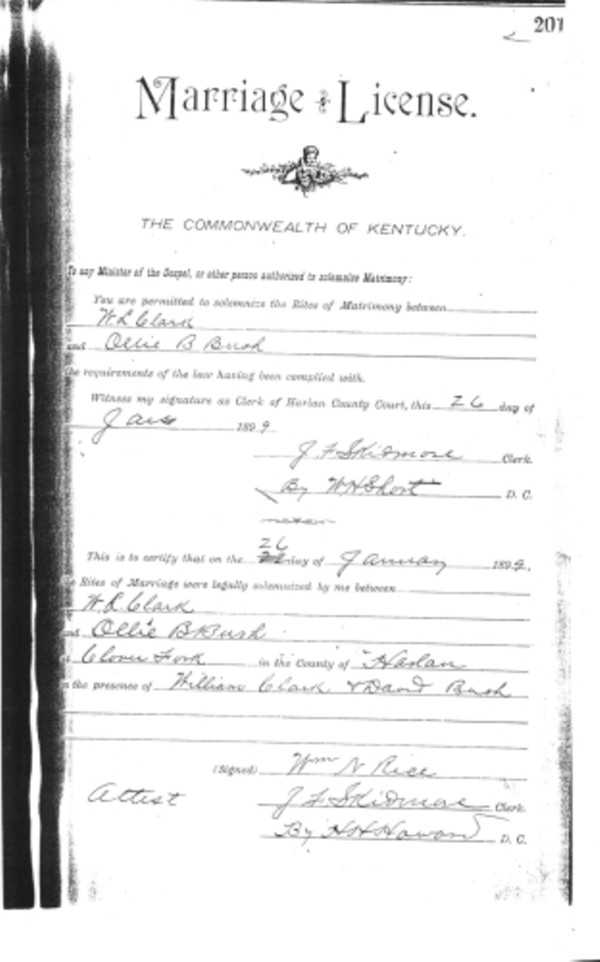 201
Marriage License.
THE COMMONWEALTH OF KENTUCKY.
To any Minister of the Gospel, or other person authorized to solemnize Matrimony:
You are permitted to solemnize the Rites of Matrimony between
W L Clark
and Ollie B Bush
the requirements of the law having been complied with.
Witness my signature as Clerk of Harlan County Court, this 26 day of
1899
J. F. Skidmore Clerk.
By W H Short D. C.
26
This is to certify that on the day of January 1899,
the Rites of Marriage were legally solemnized by me between
W. L. Clark
and Ollie B Bush
at Clover Fork in the County of Harlan
in the presence of William Clark & David Bush
(Signed) Wm N Rice
Attest J F Skidmore Clerk
By H H Howard D. C.